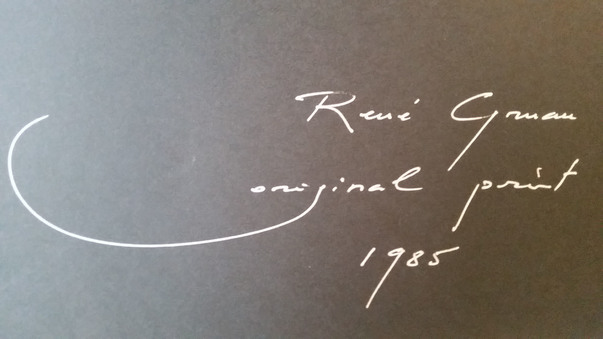 René Gruau
original print
1985